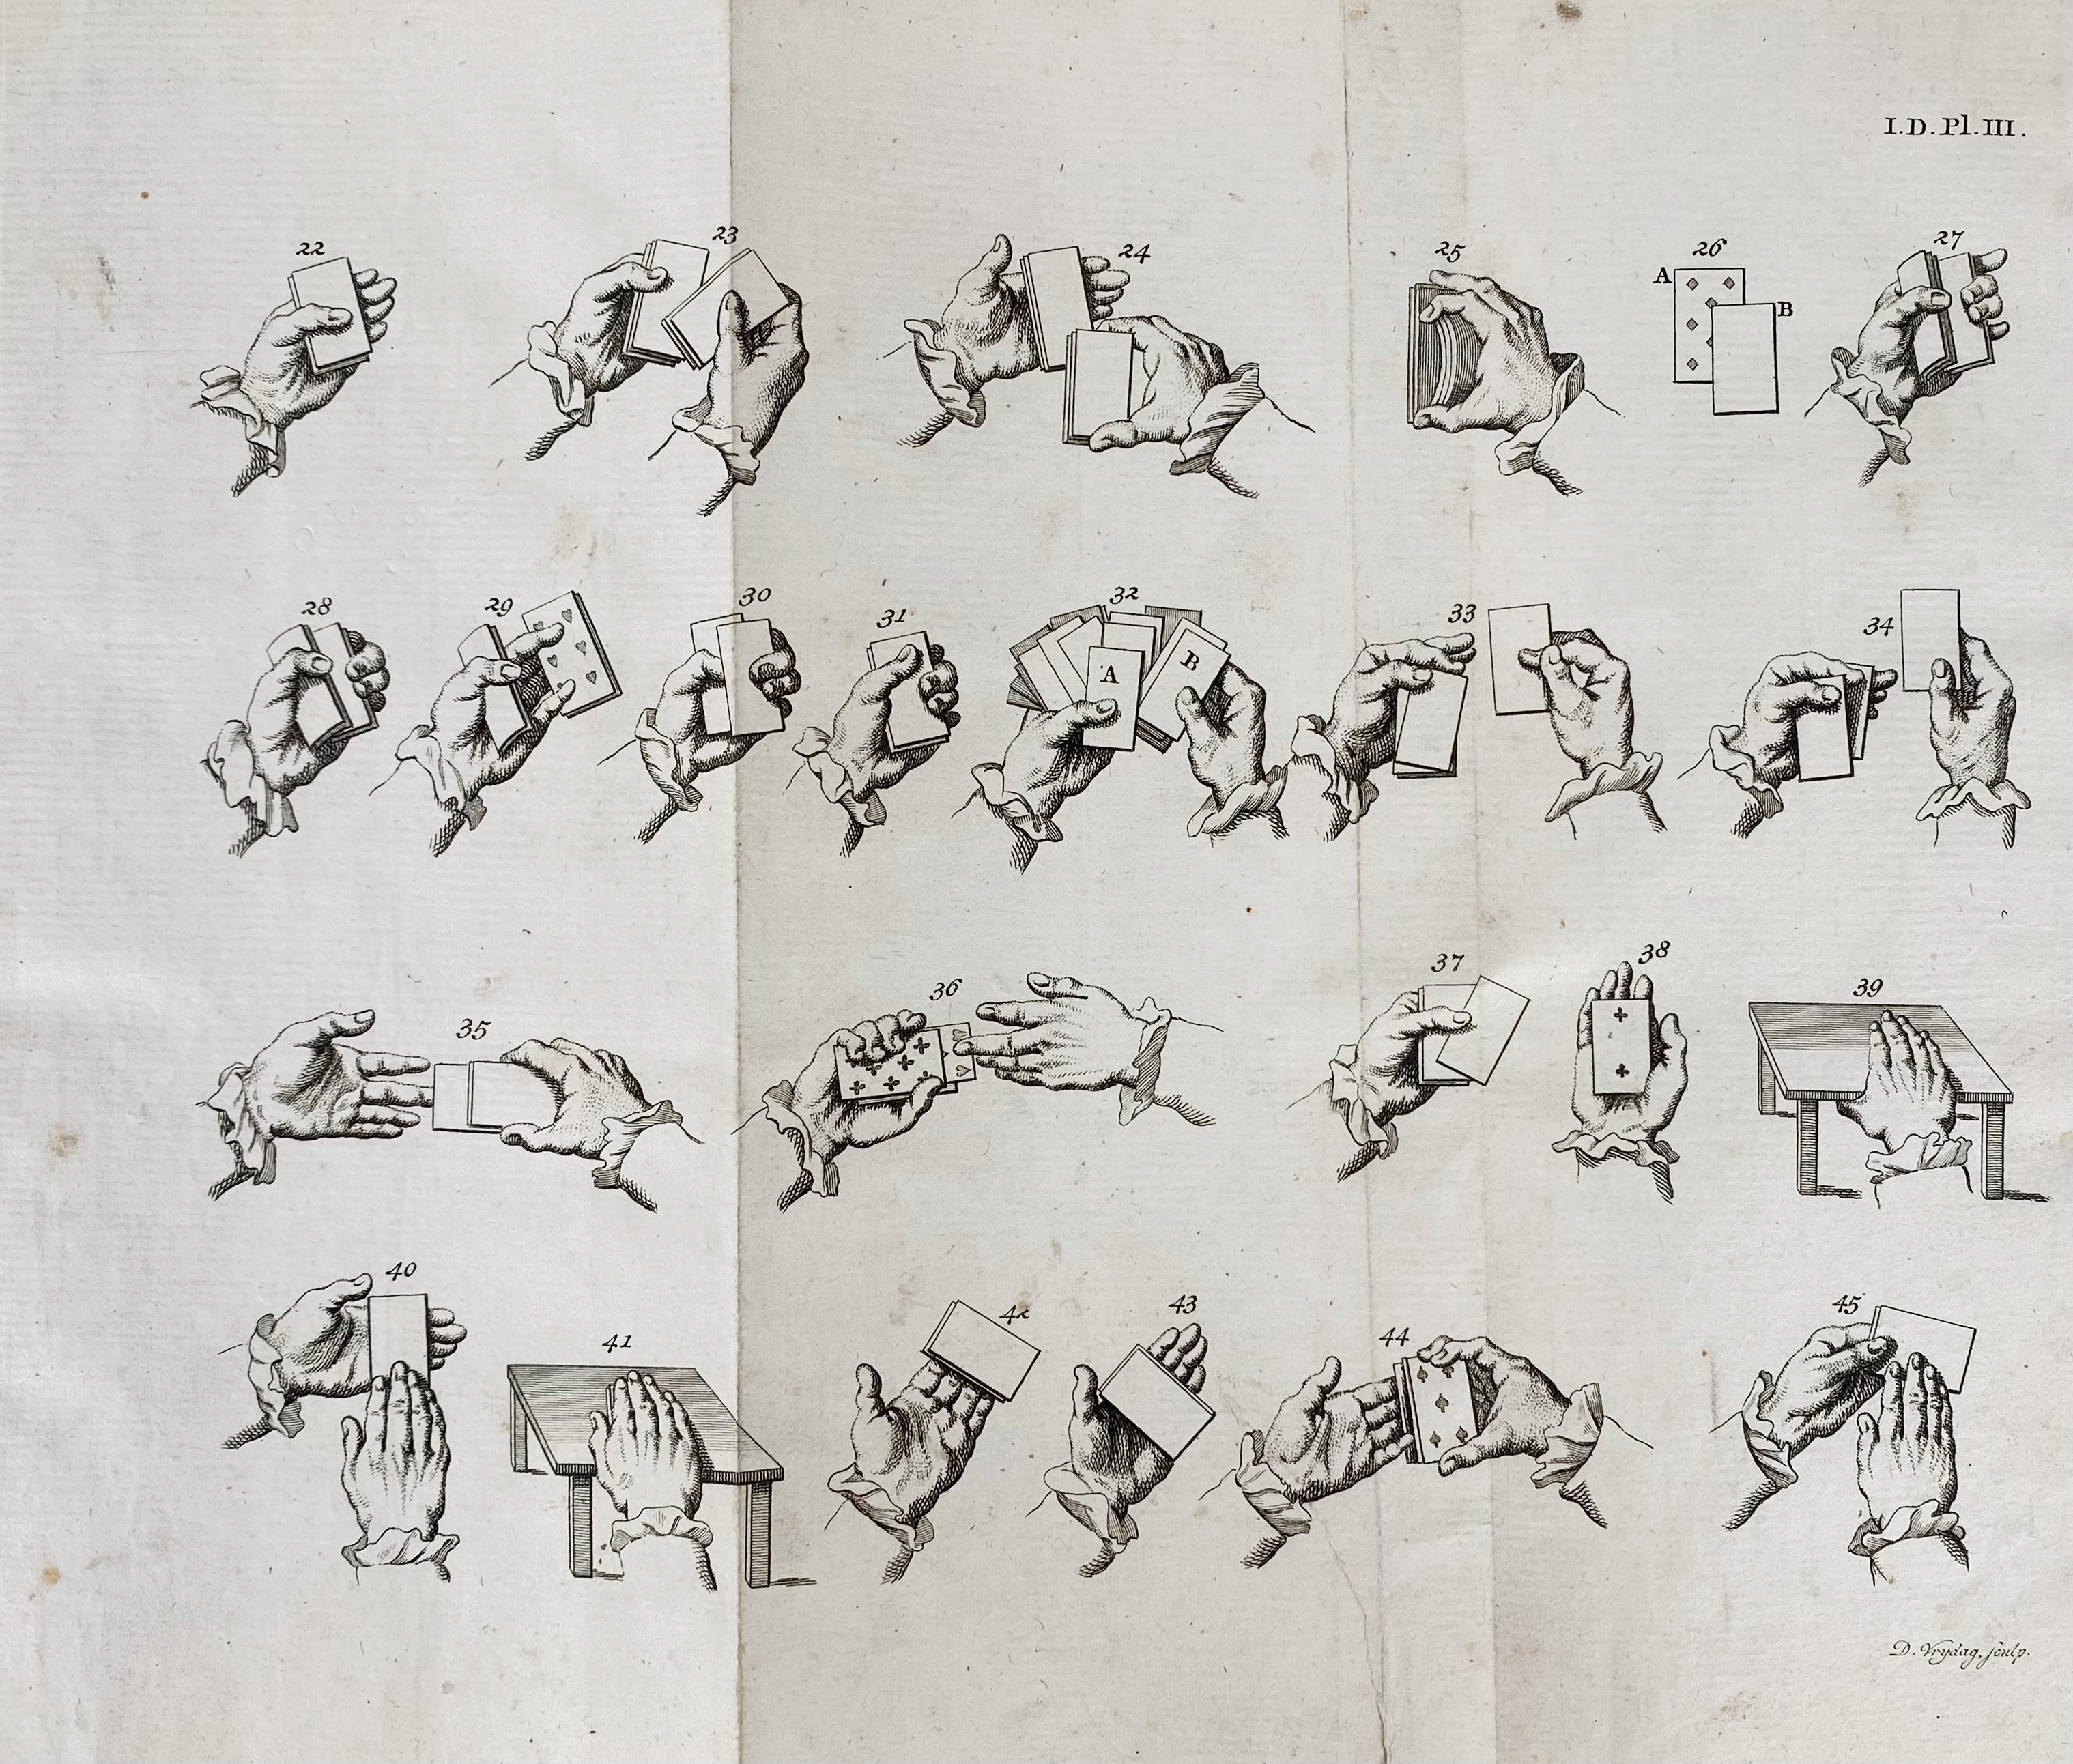 I.D.Pl.III.
22
23
24
25
26
27
A
B
28
29
30
31
32
33
34
A
B
35
36
37
38
39
40
41
42
43
44
45
D. Vrydag, sculp.